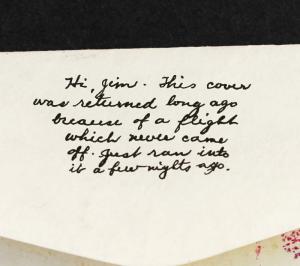 Hi, Jim. This cover
was returned long ago
because of a flight
which never came
off. Just ran into
it a few nights ago.